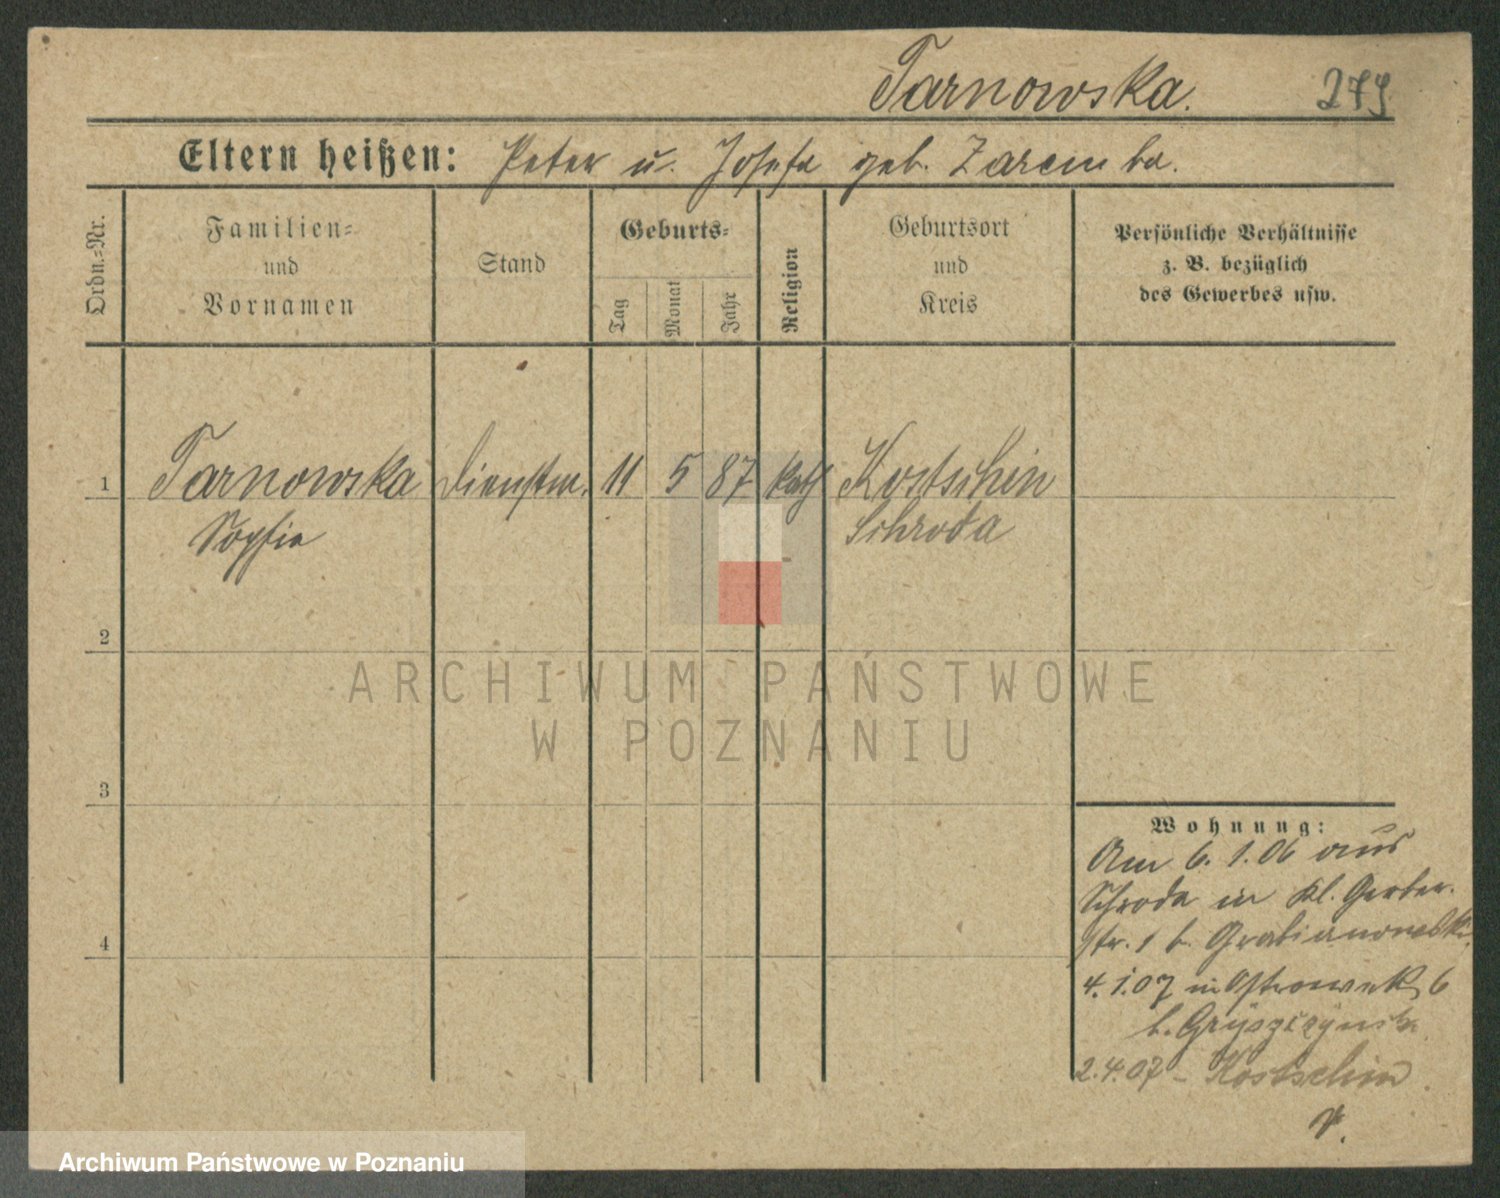 Tarnowska. 279
Eltern heißen: Peter u. Josefa geb. Zaremba.
Ordn.-Nr.
Familien-
und
Vornamen
Stand
Geburts-
Tag
Monat
Jahr
Religion
Geburtsort
und
Kreis
Persönliche Verhältnisse
z. B. bezüglich
des Gewerbes usw.
1 Tarnowska Dienstm. 11 5 87 kath Kostschin
Sophie Schroda
2
3
4
Wohnung:
Am 6. 1. 06 aus
Schroda in Kl. Gerber-
str. 1 b. Grabianowski
4. 1. 07 in Ostrowek 6
b.
2. 4. 07 - Kostschin
ARCHIWUM PAŃSTWOWE
W POZNANIU
Archiwum Państwowe w Poznaniu